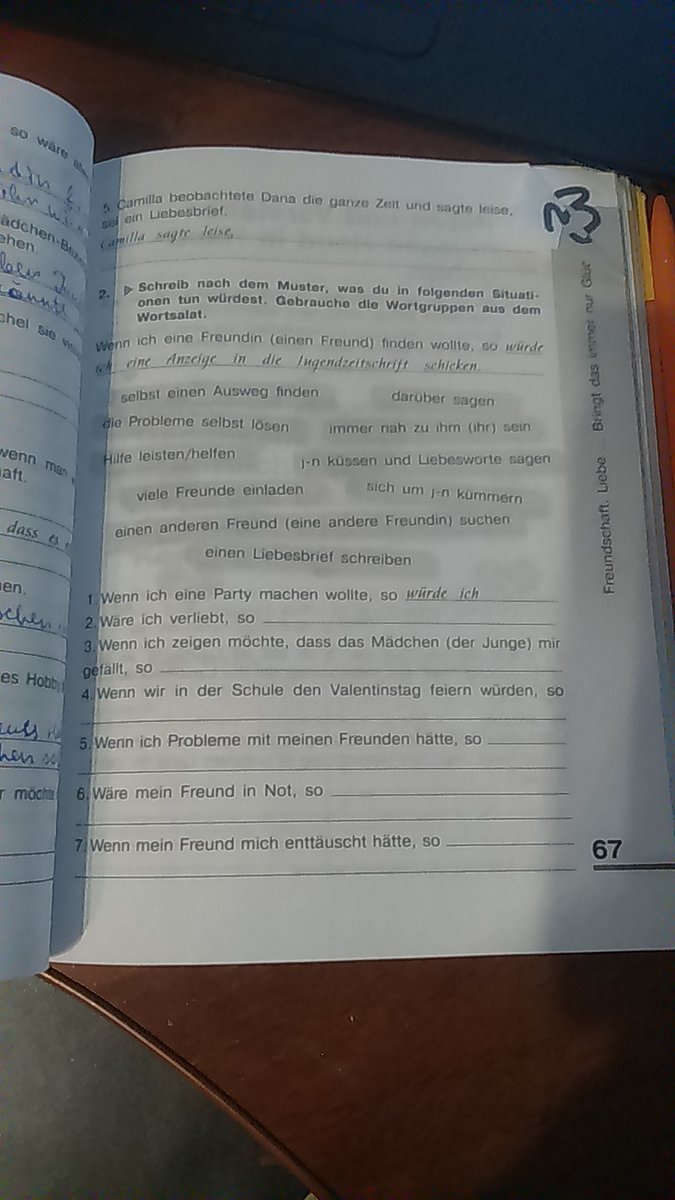 so wäre
5. Camilla beobachtete Dana die ganze Zeit und sagte leise,
sei ein Liebesbrief.
Camilla sagte leise,
2. ▷ Schreib nach dem Muster, was du in folgenden Situati-
onen tun würdest. Gebrauche die Wortgruppen aus dem
Wortsalat.
Wenn ich eine Freundin (einen Freund) finden wollte, so würde
ich eine Anzeige in die Jugendzeitschrift schicken.
selbst einen Ausweg finden darüber sagen
die Probleme selbst lösen immer nah zu ihm (ihr) sein
Hilfe leisten/helfen j-n küssen und Liebesworte sagen
viele Freunde einladen sich um j-n kümmern
einen anderen Freund (eine andere Freundin) suchen
einen Liebesbrief schreiben
1. Wenn ich eine Party machen wollte, so würde ich
2. Wäre ich verliebt, so
3. Wenn ich zeigen möchte, dass das Mädchen (der Junge) mir
gefällt, so
4. Wenn wir in der Schule den Valentinstag feiern würden, so
5. Wenn ich Probleme mit meinen Freunden hätte, so
6. Wäre mein Freund in Not, so
7. Wenn mein Freund mich enttäuscht hätte, so
67
Freundschaft, Liebe ... Bringt das immer nur
dass es
es Hobby